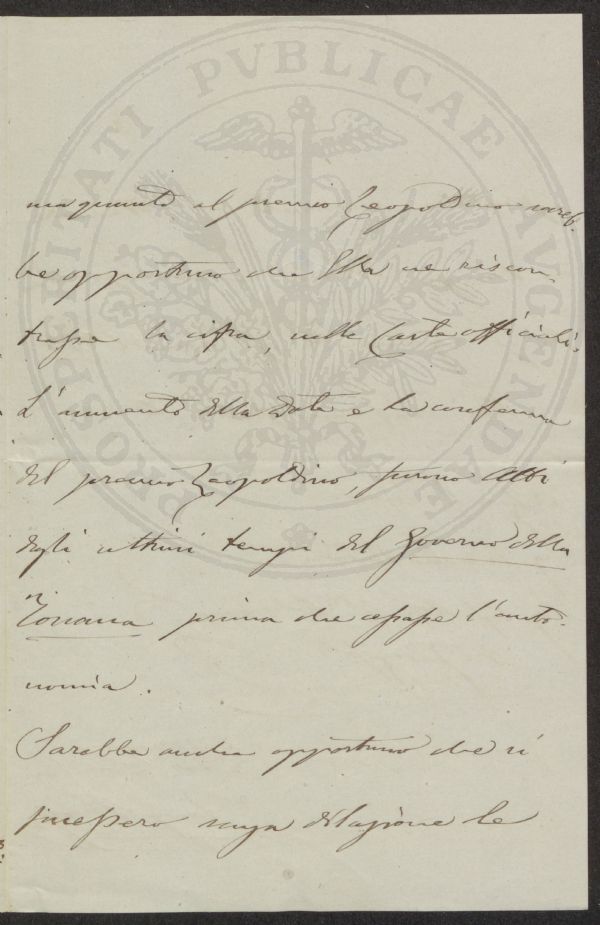 PROSPERITATI PVBLICAE AVGENDAE
ma quanto al premio Leopoldino sareb-
be opportuno che Ella ne riscon-
trasse la cifra, nelle Carte officiali.
L'aumento della dote e la conferma
del premio Leopoldino, furono Atti
degli ultimi tempi del Governo della
Toscana prima che cessasse l'auto-
nomia.
Sarebbe anche opportuno che si
facessero senza dilazione le